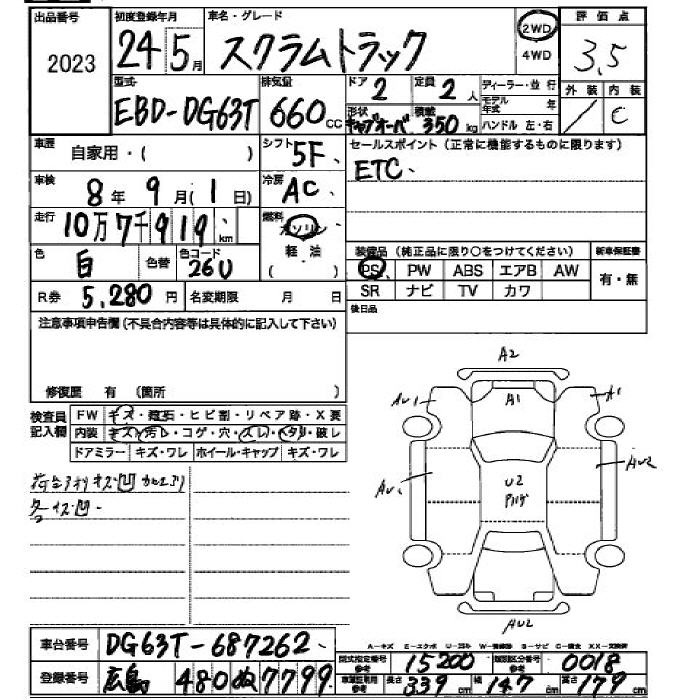 出品番号 初度登録年月 車名・グレード 評価点
2023 24 5月 スクラムトラック 2WD 4WD 3.5
型式 排気量 ドア 定員 ディーラー・並行 外装 内装
EBD-DG63T 660cc 2 2人 モデル年式 年 / C
形状 キャブオーバ 積載 350kg ハンドル 左・右
車歴 自家用・( ) シフト 5F セールスポイント(正常に機能するものに限ります)
車検 8年 9月(1日) 冷房 AC ETC、
走行 10万7千919km 燃料 ガソリン 軽・油 ( )
色 白 色替 色コード 26U
装備品(純正品に限り○をつけてください) 新車保証書
PS PW ABS エアB AW 有・無
SR ナビ TV カワ
R券 5,280円 名変期限 月 日 後日品
注意事項申告欄(不具合内容等は具体的に記入して下さい)
修復歴 有 (箇所 )
検査員記入欄 FW キズ・飛石・ヒビ割・リペア跡・X要
内装 キズ・汚レ・コゲ・穴・スレ・ヘタリ・破レ
ドアミラー キズ・ワレ ホイール・キャップ キズ・ワレ
キズ凹
各キズ凹
A2
AU1 A1 A1
AU2
U2
AU2
A-キズ E-エクボ U-凹ミ W-補修跡 S-サビ C-腐食 XX-交換済
車台番号 DG63T-687262
型式指定番号 参考 15200 類別区分番号 参考 0018
登録番号 広島 480 ぬ 7799
車検証専用 参考 長さ 339cm 幅 147cm 高さ 179cm